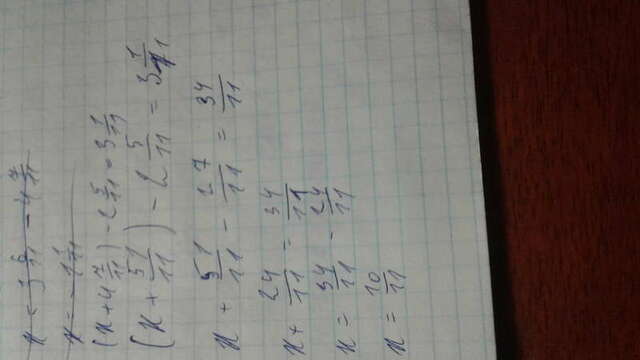 (x + 4 7/11) - 2 5/11 = 3 1/11
(x + 51/11) - 2 5/11 = 3 1/11
x + 51/11 - 27/11 = 34/11
x + 24/11 = 34/11
x = 34/11 - 24/11
x = 10/11